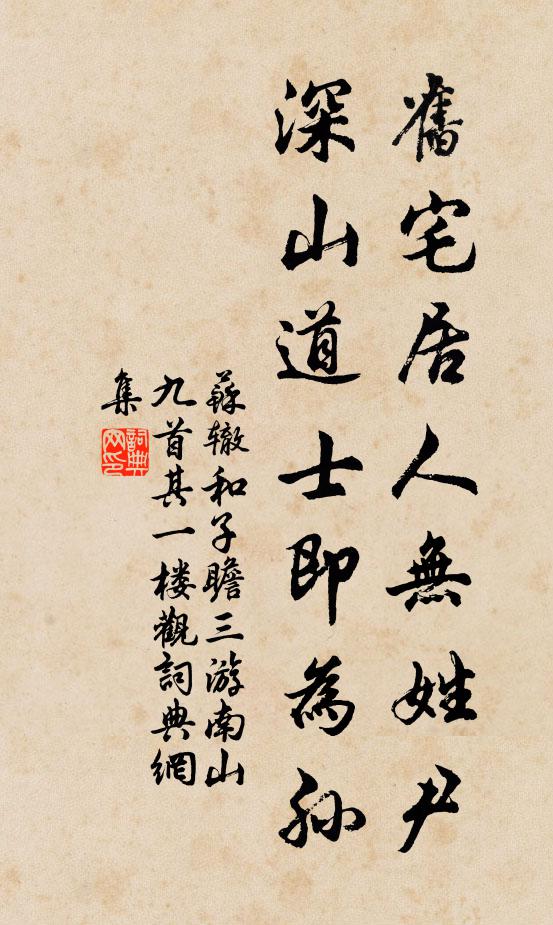 舊宅居人無姓尹
深山道士即為孫
蘇辙和子瞻三游南山
九首其一楼觀詞典網
集
詞典
网印